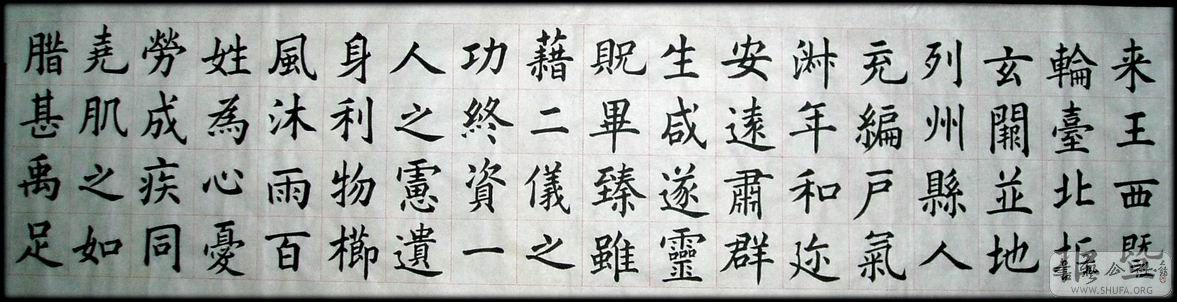 来王西暨
輪臺北拒
玄闕並地
列州縣人
充編戶氣
淑年和迩
安遠肅群
生咸遂靈
貺畢臻雖
藉二儀之
功終資一
人之慮遺
身利物櫛
風沐雨百
姓為心憂
勞成疾同
堯肌之如
腊甚禹足
WWW.SHUFA.ORG